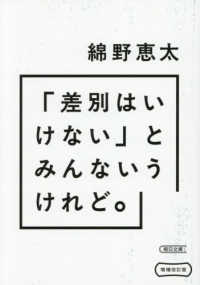 綿野恵太
「差別はい
けない」と
みんないう
けれど。
朝日文庫
増補改訂版